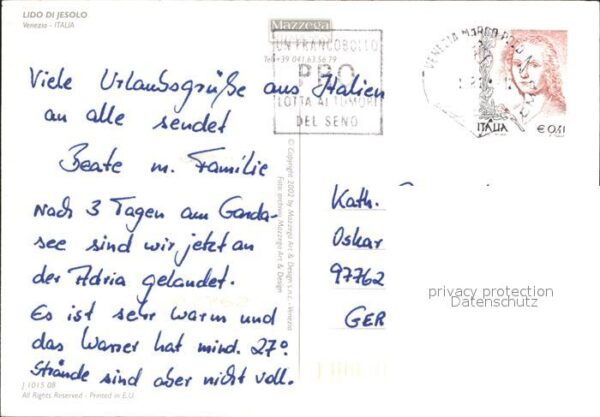 LIDO DI JESOLO
Venezia - ITALIA
Mazzega
Tel.+39 041.63.56.79
UN FRANCOBOLLO
PRO
LOTTA AI TUMORI
DEL SENO
VENEZIA MARCO POLO
ITALIA € 0,41
Viele Urlaubsgrüße aus Italien
an alle sendet
Beate m. Familie
Nach 3 Tagen am Garda-
see sind wir jetzt an
der Adria gelandet.
Es ist sehr warm und
das Wasser hat mind. 27°.
Strände sind aber nicht voll.
© Copyright 2002 by Mazzega Art & Design s.n.c. - Venezia
Foto: archivio Mazzega Art & Design
Kath.
Oskar
97762
GER
privacy protection
Datenschutz
J 1015 08
All Rights Reserved - Printed in E.U.